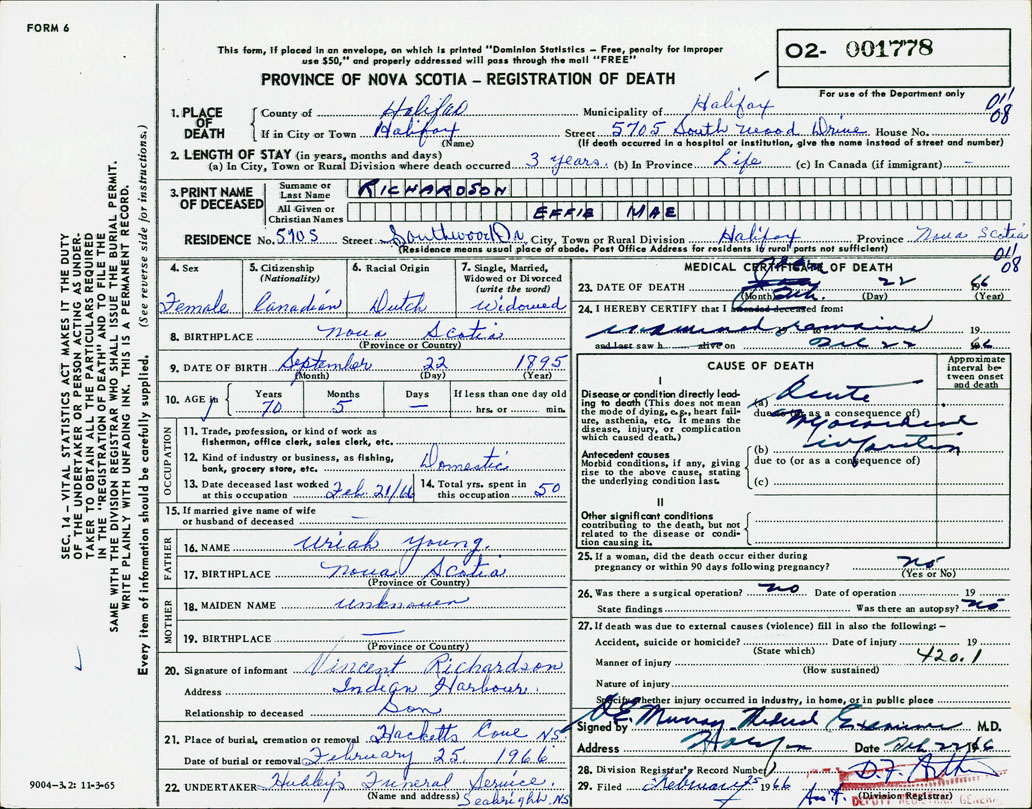 FORM 6
This form, if placed in an envelope, on which is printed "Dominion Statistics — Free, penalty for improper
use $50," and properly addressed will pass through the mail "FREE"
PROVINCE OF NOVA SCOTIA — REGISTRATION OF DEATH
02- 001778
For use of the Department only
1. PLACE OF DEATH County of Halifax Municipality of Halifax 011 08
If in City or Town Halifax Street 5705 South wood Drive House No.
(Name) (If death occurred in a hospital or institution, give the name instead of street and number)
2. LENGTH OF STAY (in years, months and days)
(a) In City, Town or Rural Division where death occurred 3 years (b) In Province Life (c) In Canada (if immigrant) —
3. PRINT NAME OF DECEASED Surname or Last Name RICHARDSON
All Given or Christian Names EFFIE MAE
RESIDENCE No. 5705 Street Southwood Dr City, Town or Rural Division Halifax Province Nova Scotia
(Residence means usual place of abode. Post Office Address for residents in rural parts not sufficient)
011 08
4. Sex 5. Citizenship (Nationality) 6. Racial Origin 7. Single, Married, Widowed or Divorced (write the word)
Female Canadian Dutch Widowed
8. BIRTHPLACE Nova Scotia
(Province or Country)
9. DATE OF BIRTH September 22 1895
(Month) (Day) (Year)
10. AGE in Years Months Days If less than one day old
70 5 — hrs. or min.
OCCUPATION
11. Trade, profession, or kind of work as
fisherman, office clerk, sales clerk, etc.
12. Kind of industry or business, as fishing,
bank, grocery store, etc. Domestic
13. Date deceased last worked at this occupation Feb. 21/66 14. Total yrs. spent in this occupation 50
15. If married give name of wife
or husband of deceased —
FATHER
16. NAME Uriah Young.
17. BIRTHPLACE Nova Scotia
(Province or Country)
MOTHER
18. MAIDEN NAME unknown
19. BIRTHPLACE —
(Province or Country)
20. Signature of informant Vincent Richardson
Address Indian Harbour.
Relationship to deceased Son
21. Place of burial, cremation or removal Hacketts Cove NS
Date of burial or removal February 25. 1966
22. UNDERTAKER Hubley's Funeral Service.
(Name and address) Seabright. NS
MEDICAL CERTIFICATE OF DEATH
23. DATE OF DEATH Feb. 22 66
(Month) (Day) (Year)
24. I HEREBY CERTIFY that I attended deceased from:
examined remains 19
and last saw h alive on Feb 22 1966
CAUSE OF DEATH
Approximate interval between onset and death
I
Disease or condition directly leading to death (This does not mean
the mode of dying, e.g., heart failure, asthenia, etc. It means the
disease, injury, or complication
which caused death.)
(a) Acute
due to (or as a consequence of)
myocardial
Antecedent causes
Morbid conditions, if any, giving
rise to the above cause, stating
the underlying condition last.
(b) infarction
due to (or as a consequence of)
(c)
II
Other significant conditions
contributing to the death, but not
related to the disease or condition causing it.
25. If a woman, did the death occur either during
pregnancy or within 90 days following pregnancy? no
(Yes or No)
26. Was there a surgical operation? no Date of operation 19
State findings Was there an autopsy? no
27. If death was due to external causes (violence) fill in also the following: —
Accident, suicide or homicide? Date of injury 19
(State which) 420.1
Manner of injury
(How sustained)
Nature of injury
Specify whether injury occurred in industry, in home, or in public place
Signed by Murray Medical Examiner M.D.
Address Date Feb 22 1966
28. Division Registrar's Record Number
29. Filed February 25 1966
(Division Registrar)
DEPUTY REGISTRAR GENERAL
SEC. 14 — VITAL STATISTICS ACT MAKES IT THE DUTY
OF THE UNDERTAKER OR PERSON ACTING AS UNDERTAKER TO OBTAIN ALL THE PARTICULARS REQUIRED
IN THE "REGISTRATION OF DEATH" AND TO FILE THE
SAME WITH THE DIVISION REGISTRAR WHO SHALL ISSUE THE BURIAL PERMIT.
WRITE PLAINLY WITH UNFADING INK. THIS IS A PERMANENT RECORD.
Every item of information should be carefully supplied. (See reverse side for instructions.)
9004-3.2: 11-3-65